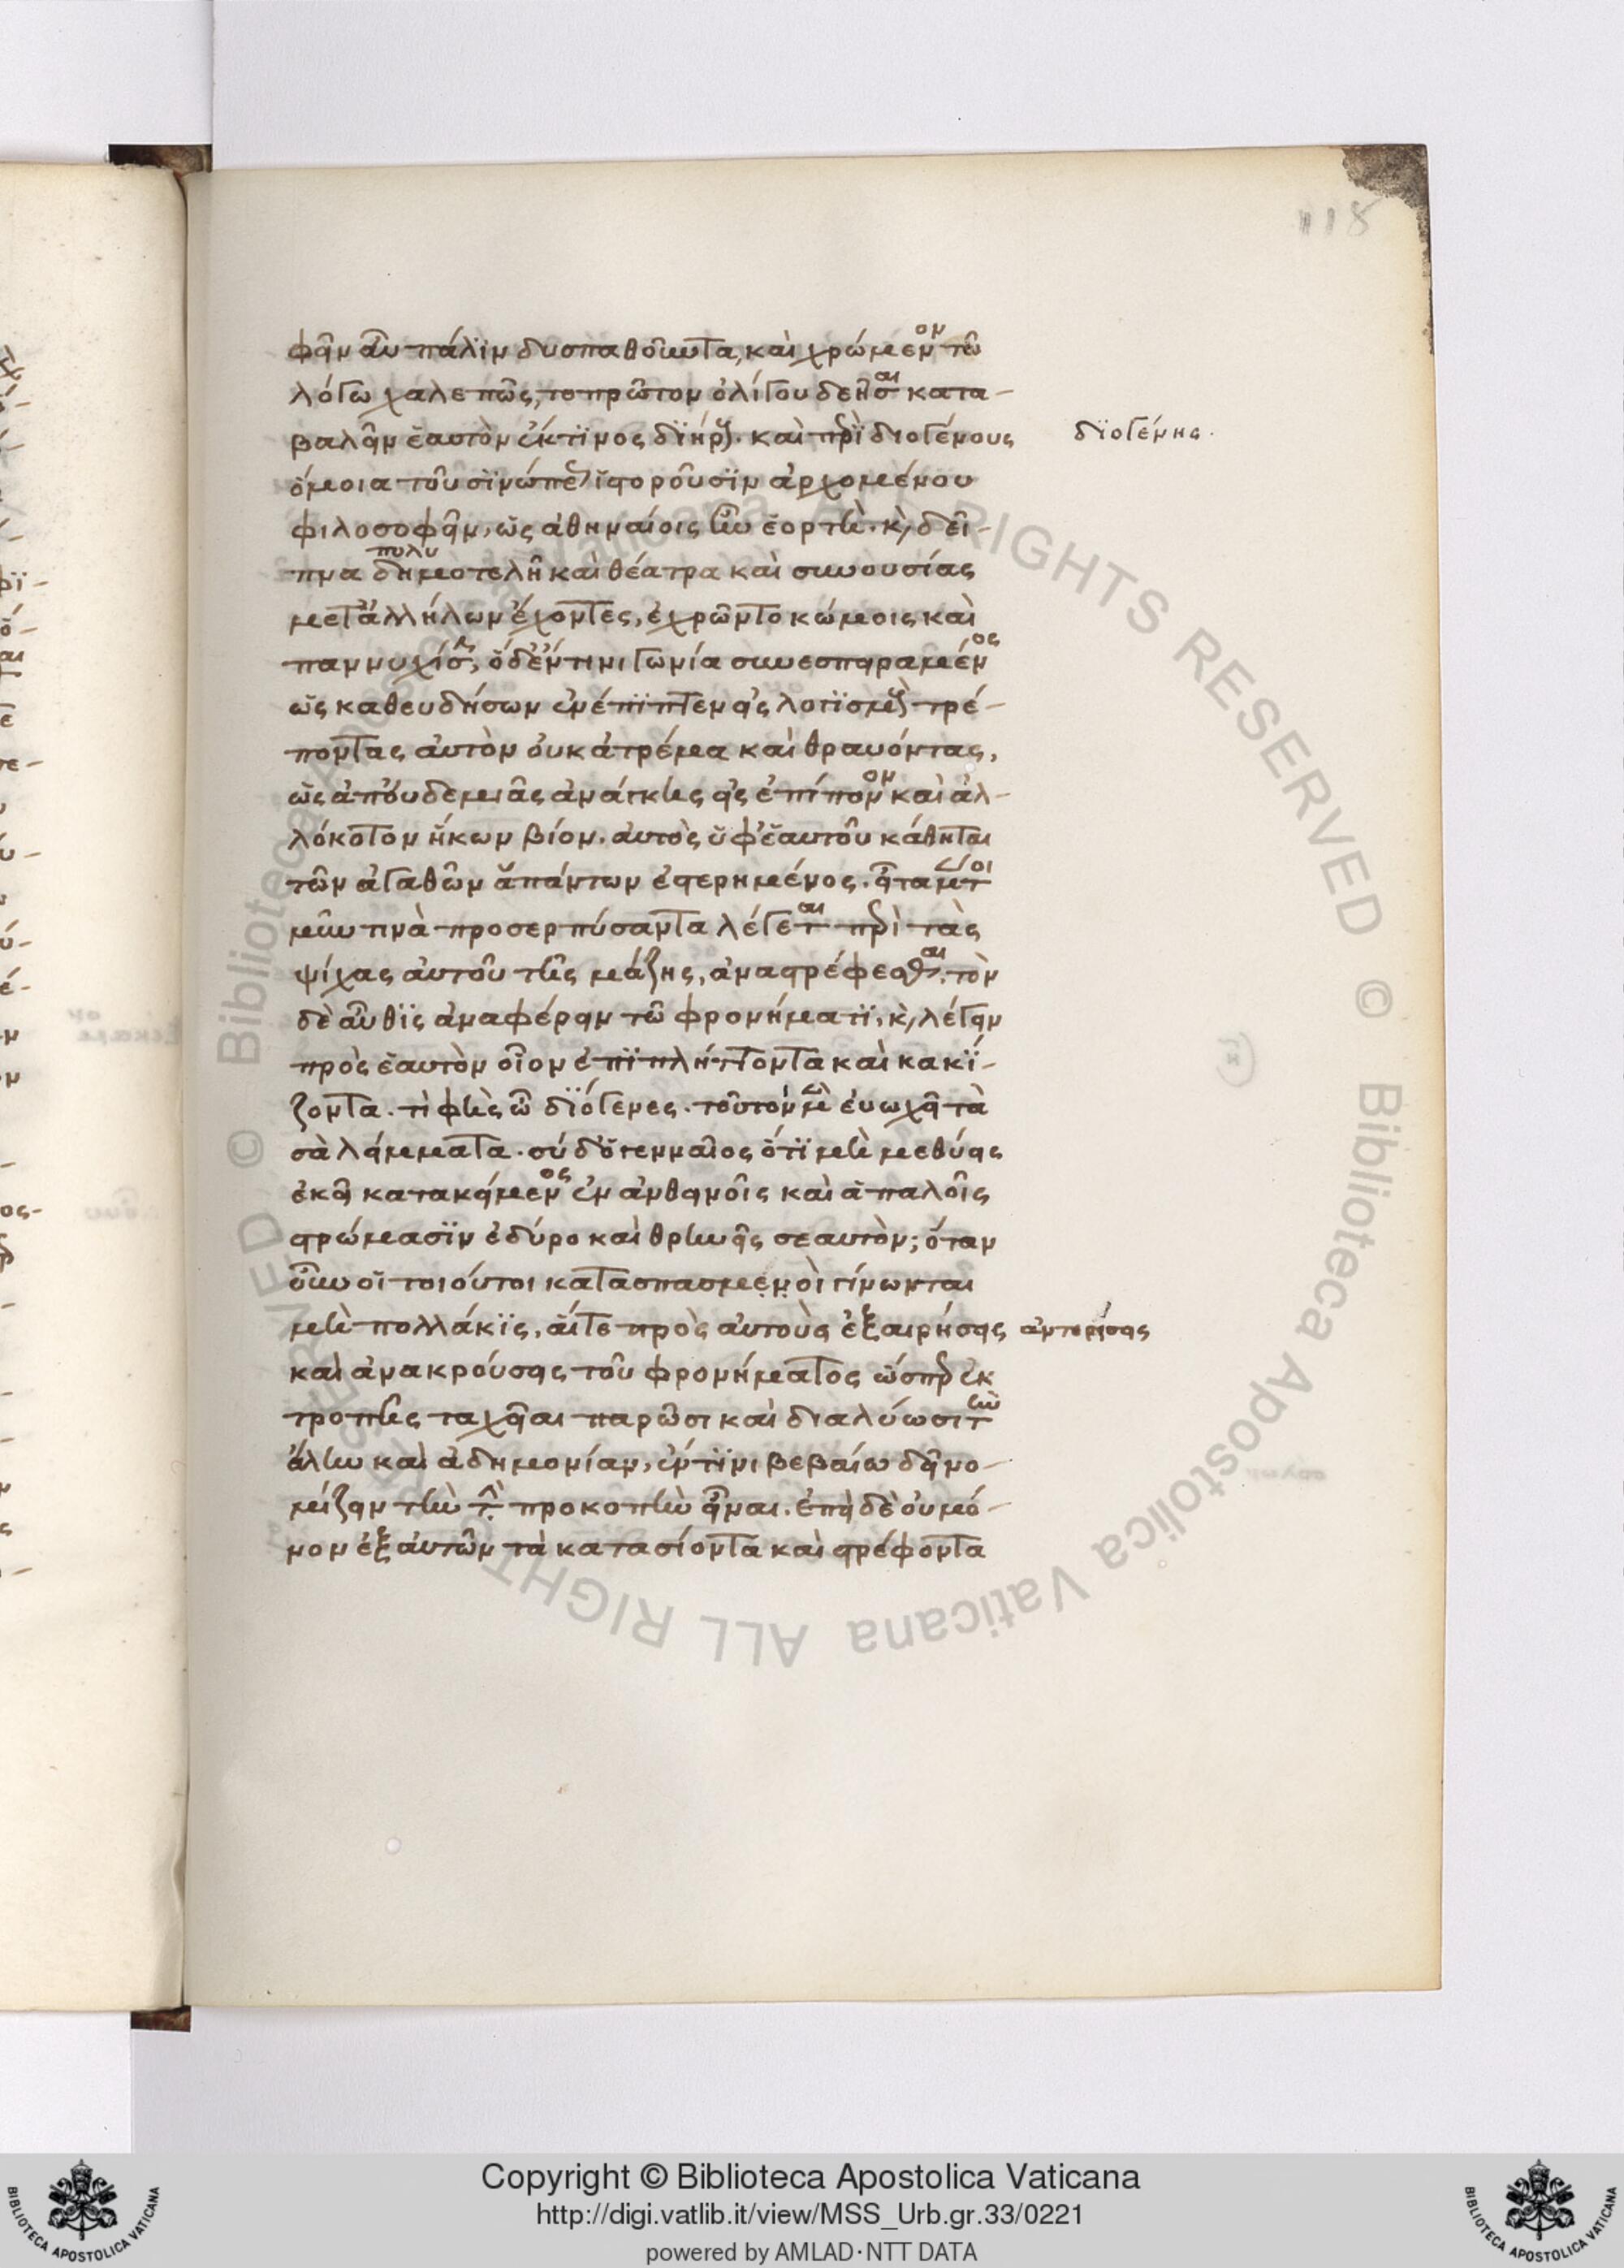 φεῖν αὖ πάλϊν δυσπαθοῦντα, καὶ χρώμενον τῶ
λόγω χαλεπῶς, το πρῶτον ὀλίγου δεῆσαι κατα-
βαλεῖν ἑαυτὸν ἔκ τϊνος διήρους. καὶ περὶ διογένους διογένης.
ὅμοια τοῦ σϊνώπεως ἱστοροῦσϊν ἀρχομένου
φιλοσοφεῖν, ὡς ἀθηναίοις ἦν ἑορτὴ. κ, δεῖ-
πνα πολυ δημοτελῆ καὶ θέατρα καὶ συνουσίας
μετ' ἀλλήλων ἔχοντες, ἐχρῶντο κώμοις καὶ
παννυχίσι, ὁ δ' ἔν τινι γωνία συνεσπειραμένος
ὡς καθευδήσων ἐνέπϊπτεν εἰς λογϊσμοὺς τρέ-
ποντας αὐτὸν οὐκ ἀτρέμα καὶ θραυόντας,
ὡς ἀπ' οὐδεμιᾶς ἀνάγκης εἰς ἐπίπονον καὶ ἀλ-
λόκοτον ἥκων βίον. αὐτὸς ὑφ' ἑαυτοῦ κάθηται
τῶν ἀγαθῶν ἁπάντων ἐστερημένος. εἶτα μέντοι
μῦν τινὰ προσερπύσαντα λέγεται περὶ τὰς
ψίχας αὐτοῦ τῆς μάζης, ἀναστρέφεσθαι, τὸν
δὲ αὖθϊς ἀναφέρειν τῶ φρονήματϊ, κ, λέγειν
πρὸς ἑαυτὸν οἷον ἐπϊπλήττοντα καὶ κακϊ-
ζοντα. τὶ φὴς ὦ διόγενες. τοῦτον μὲν εὐωχεῖ τὰ
σὰ λείμματα. σύ δ' ὁ γενναῖος ὅτϊ μὴ μεθύεις
ἐκεῖ κατακείμενος ἐν ἀνθεινοῖς καὶ ἁπαλοῖς
στρώμασϊν ὀδύρο καὶ θρηνεῖς σεαυτὸν; ὅταν
οὖν οἱ τοιούτοι κατασπασμενοὶ γίνωνται
μὴ πολλάκϊς, αἵ τε πρὸς αὐτοὺς ἐξαιρήσεις ἀντερείσεις
καὶ ἀνακρούσεις τοῦ φρονήματος ὥσπερ ἐκ
τροπῆς ταχεῖαι παρῶσι καὶ διαλύωσι τὴν
ἄλην καὶ ἀδημονίαν, ἔν τϊνι βεβαίω δεῖ νο-
μίζειν τὴν προκοπὴν εἶναι. ἐπεὶ δὲ οὐ μό-
νον ἐξ αὐτῶν τὰ κατασίοντα καὶ στρέφοντα